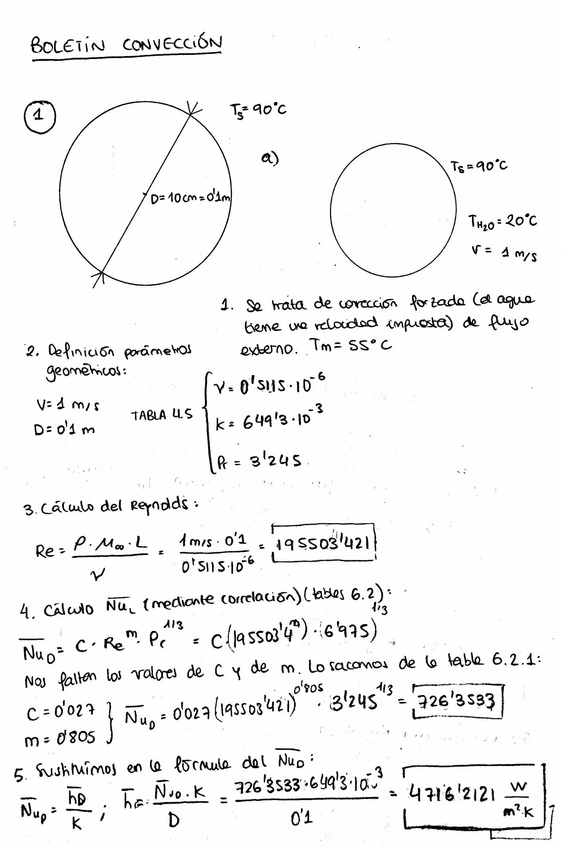 BOLETÍN CONVECCIÓN
1
Ts=90°C
D=10cm=0'1m
a)
Ts=90°C
TH2O=20°C
V= 1 m/s
1. Se trata de convección forzada (el agua
tiene una velocidad impuesta) de flujo
externo. Tm= 55°C
2. Definición parámetros
geométricos:
V=1 m/s
D=0'1 m
TABLA 4.5
ν=0'5115·10^-6
k=649'3·10^-3
Pr = 3'245
3. Cálculo del Reynolds:
Re = ρ·μ∞·L / ν = 1m/s·0'1 / 0'5115·10^-6 = 195503'421
4. Cálculo NuL (mediante correlación) (tables 6.2):
NuD = C·Re^m·Pr^1/3 = C(195503'4^m)·6'975)^1/3
Nos faltan los valores de C y de m. Lo sacamos de la table 6.2.1:
C=0'027
m=0'805
NuD=0'027(195503'421)^0'805·3'245^1/3 = 726'3533
5. Sustituimos en la fórmula del NuD:
NuD = hD / K ; h= NuD·K / D = 726'3533·649'3·10^-3 / 0'1 = 4716'2121 W / m²·K